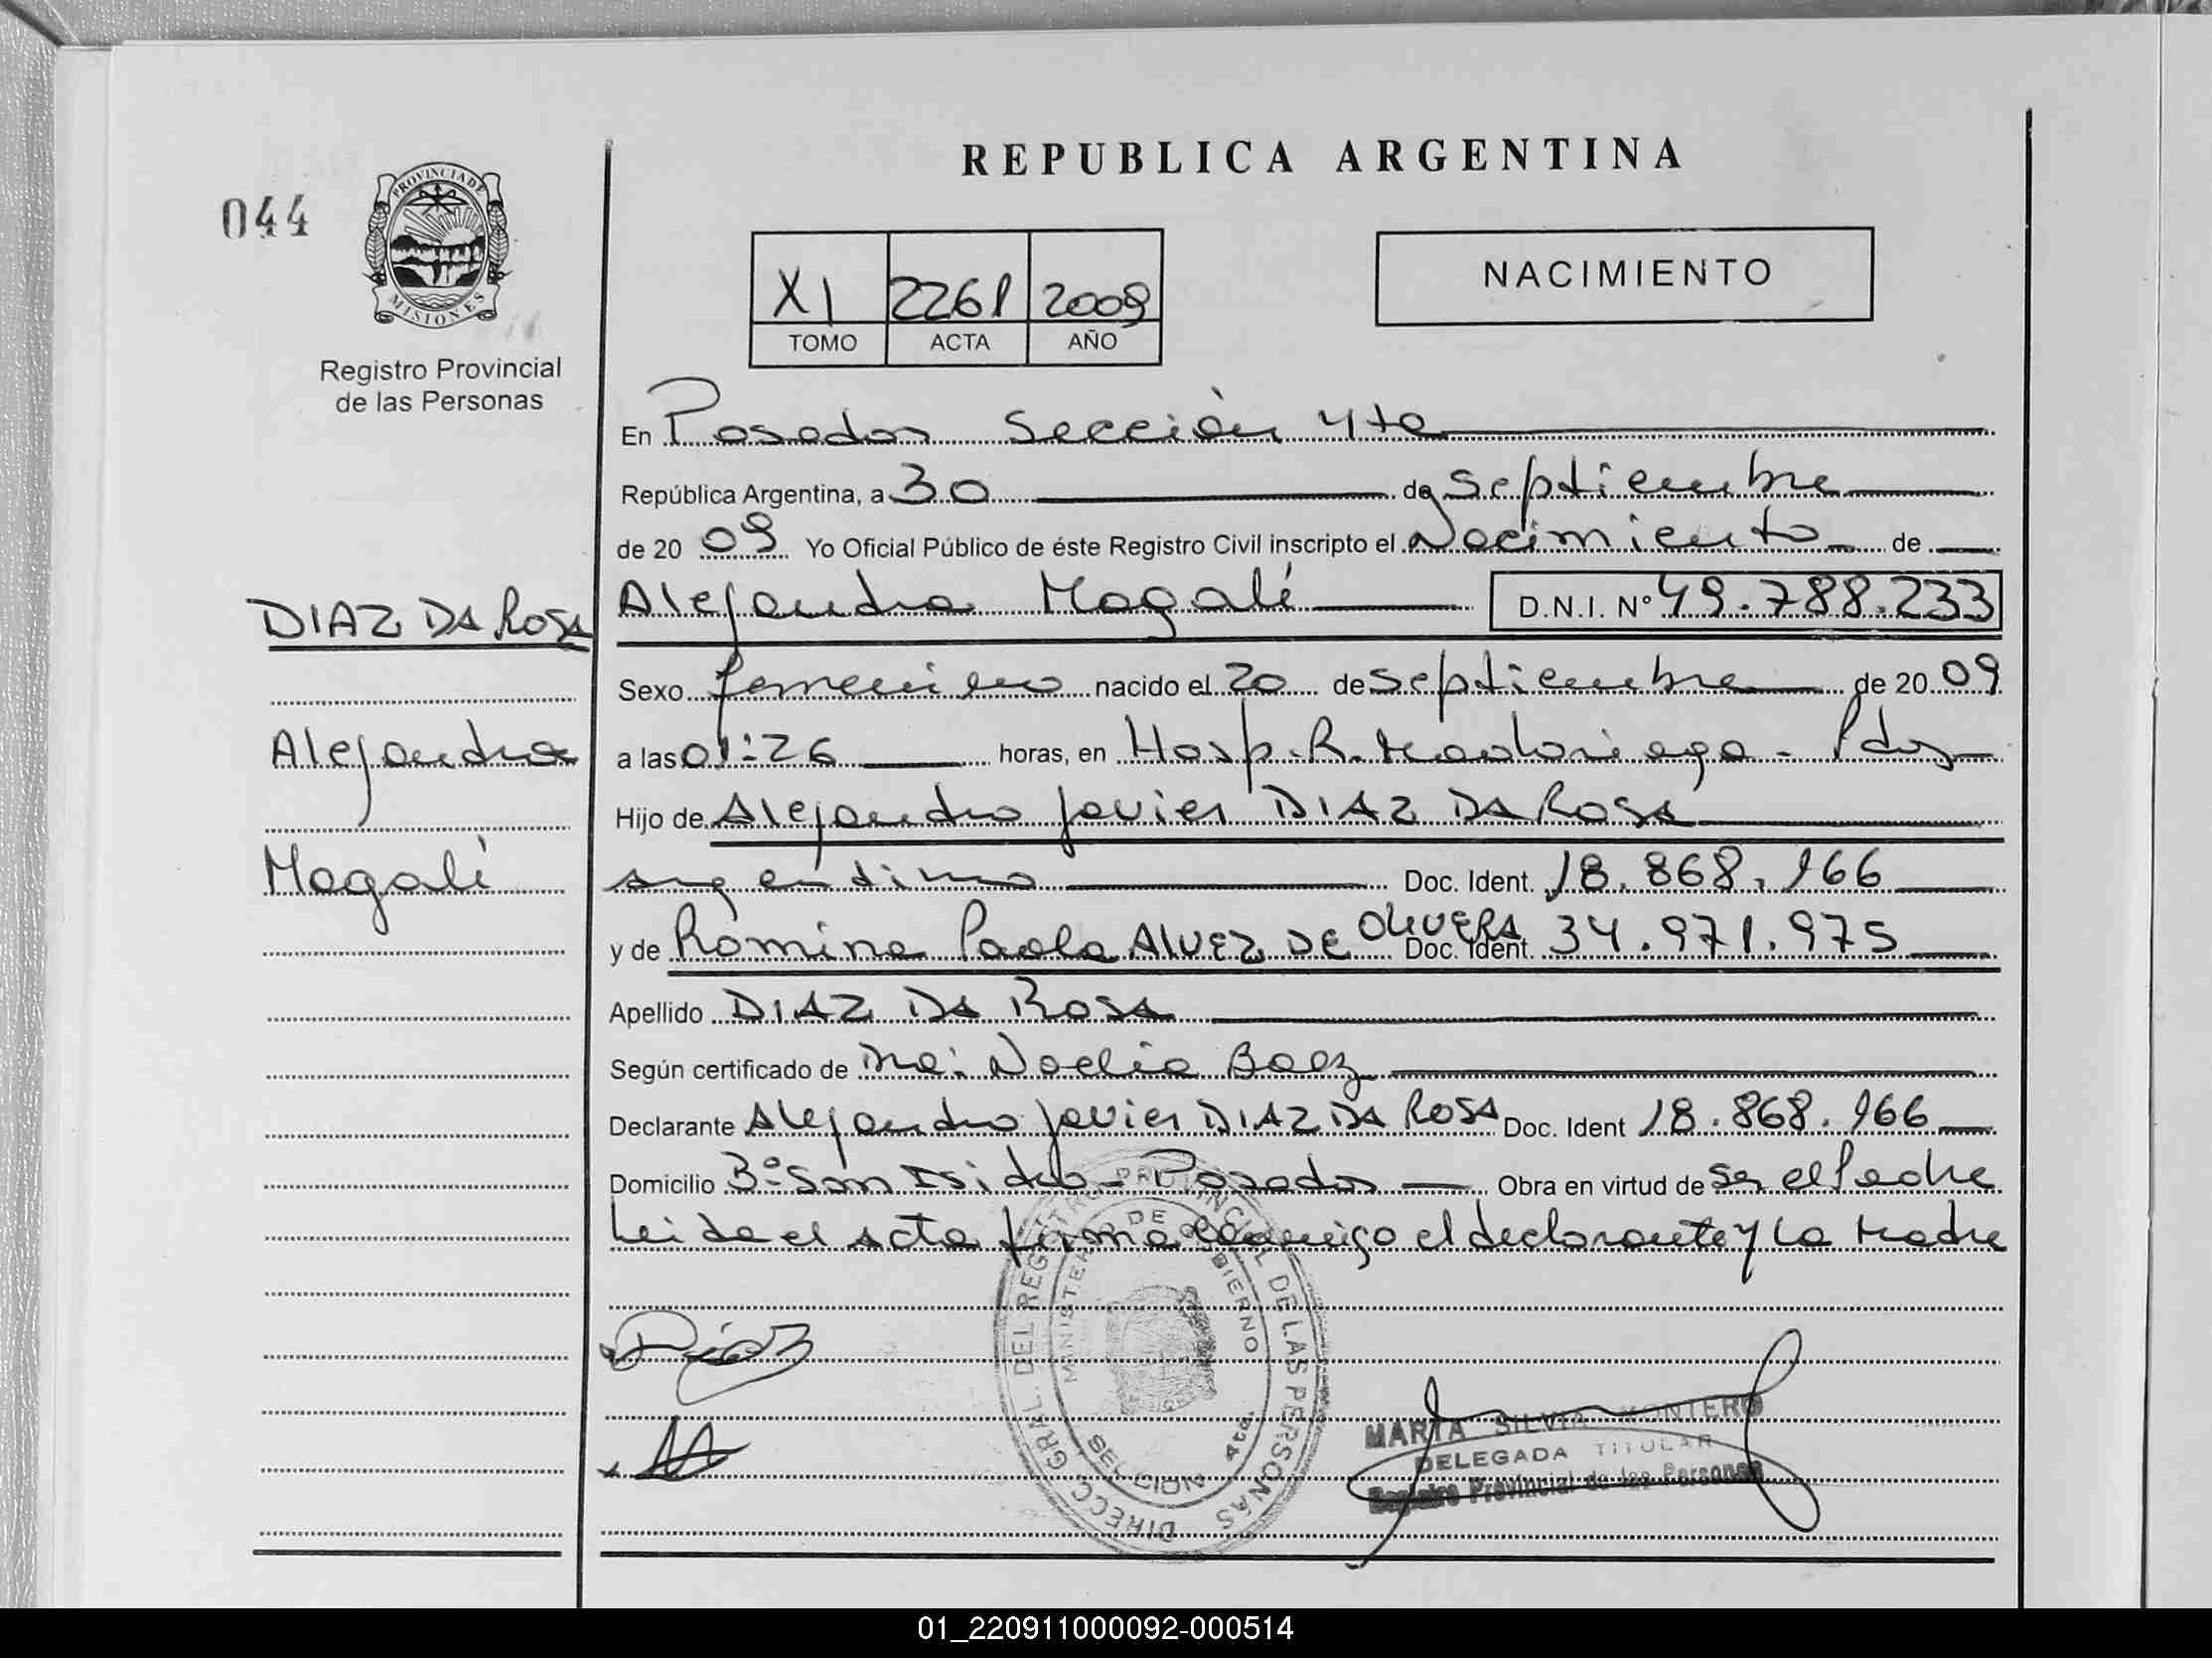 REPUBLICA ARGENTINA
044
PROVINCIA DE
MISIONES
Registro Provincial
de las Personas
XI 2261 2009
TOMO ACTA AÑO
NACIMIENTO
En Posadas Sección 4ta
República Argentina, a 30 de Septiembre
de 20 09 Yo Oficial Público de éste Registro Civil inscripto el Nacimiento de
DIAZ DA ROSA
Alejandra
Magalí
Alejandra Magalí D.N.I. Nº 49.788.233
Sexo femenino nacido el 20 de Septiembre de 20 09
a las 01:26 horas, en Hosp. R. Madariaga - Pdas
Hijo de Alejandro Javier DIAZ DA ROSA
argentino Doc. Ident. 18.868.166
y de Romina Paola ALVEZ DE OLIVERA Doc. Ident. 34.971.975
Apellido DIAZ DA ROSA
Según certificado de Noelia Baez
Declarante Alejandro Javier DIAZ DA ROSA Doc. Ident 18.868.166
Domicilio Bº San Isidro - Posadas Obra en virtud de ser el Padre
Leida el acta firma conmigo el declarante y la Madre
Diaz
DIRECC. GRAL. DEL REGISTRO PROVINCIAL DE LAS PERSONAS
MINISTERIO DE GOBIERNO
SECCION 4ta.
MARTA SILVIA MONTERO
DELEGADA TITULAR
Registro Provincial de las Personas
01_220911000092-000514